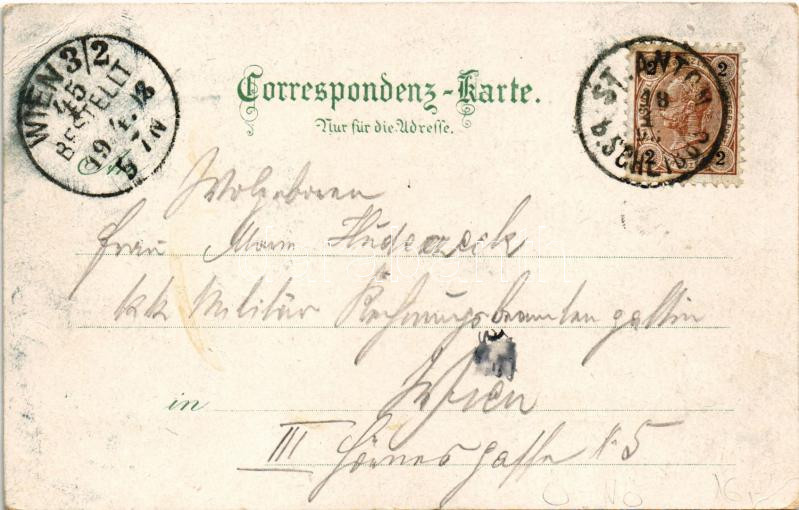 WIEN 3/2
45
BESTELLT
19 4
5 7 N
Correspondenz-Karte.
Nur für die Adresse.
2 2
ST. ANTON
8
2 2
An
Wolgeboren
Frau Marie Hudeczeck
kk Militär Rechnungsbeamtengattin
in Wien
III Hörnesgasse N 5